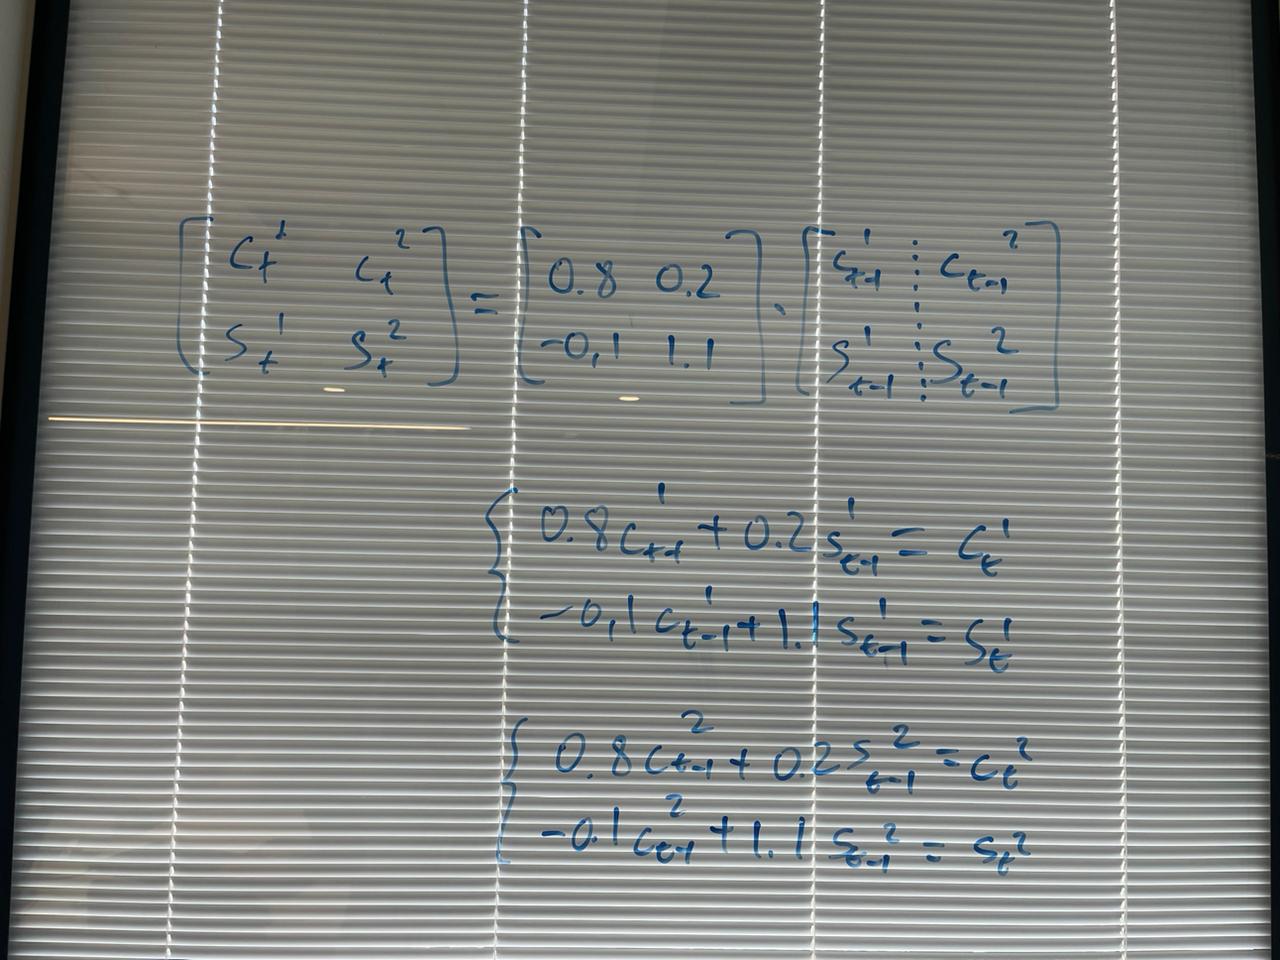 [ c_t^1 c_t^2 ] = [ 0.8 0.2 ] · [ c_{t-1}^1 ⋮ c_{t-1}^2 ]
[ s_t^1 s_t^2 ] [ -0,1 1.1 ] [ s_{t-1}^1 ⋮ s_{t-1}^2 ]
{ 0.8 c_{t-1}^1 + 0.2 s_{t-1}^1 = c_t^1
-0,1 c_{t-1}^1 + 1.1 s_{t-1}^1 = s_t^1
{ 0.8 c_{t-1}^2 + 0.2 s_{t-1}^2 = c_t^2
-0.1 c_{t-1}^2 + 1.1 s_{t-1}^2 = s_t^2